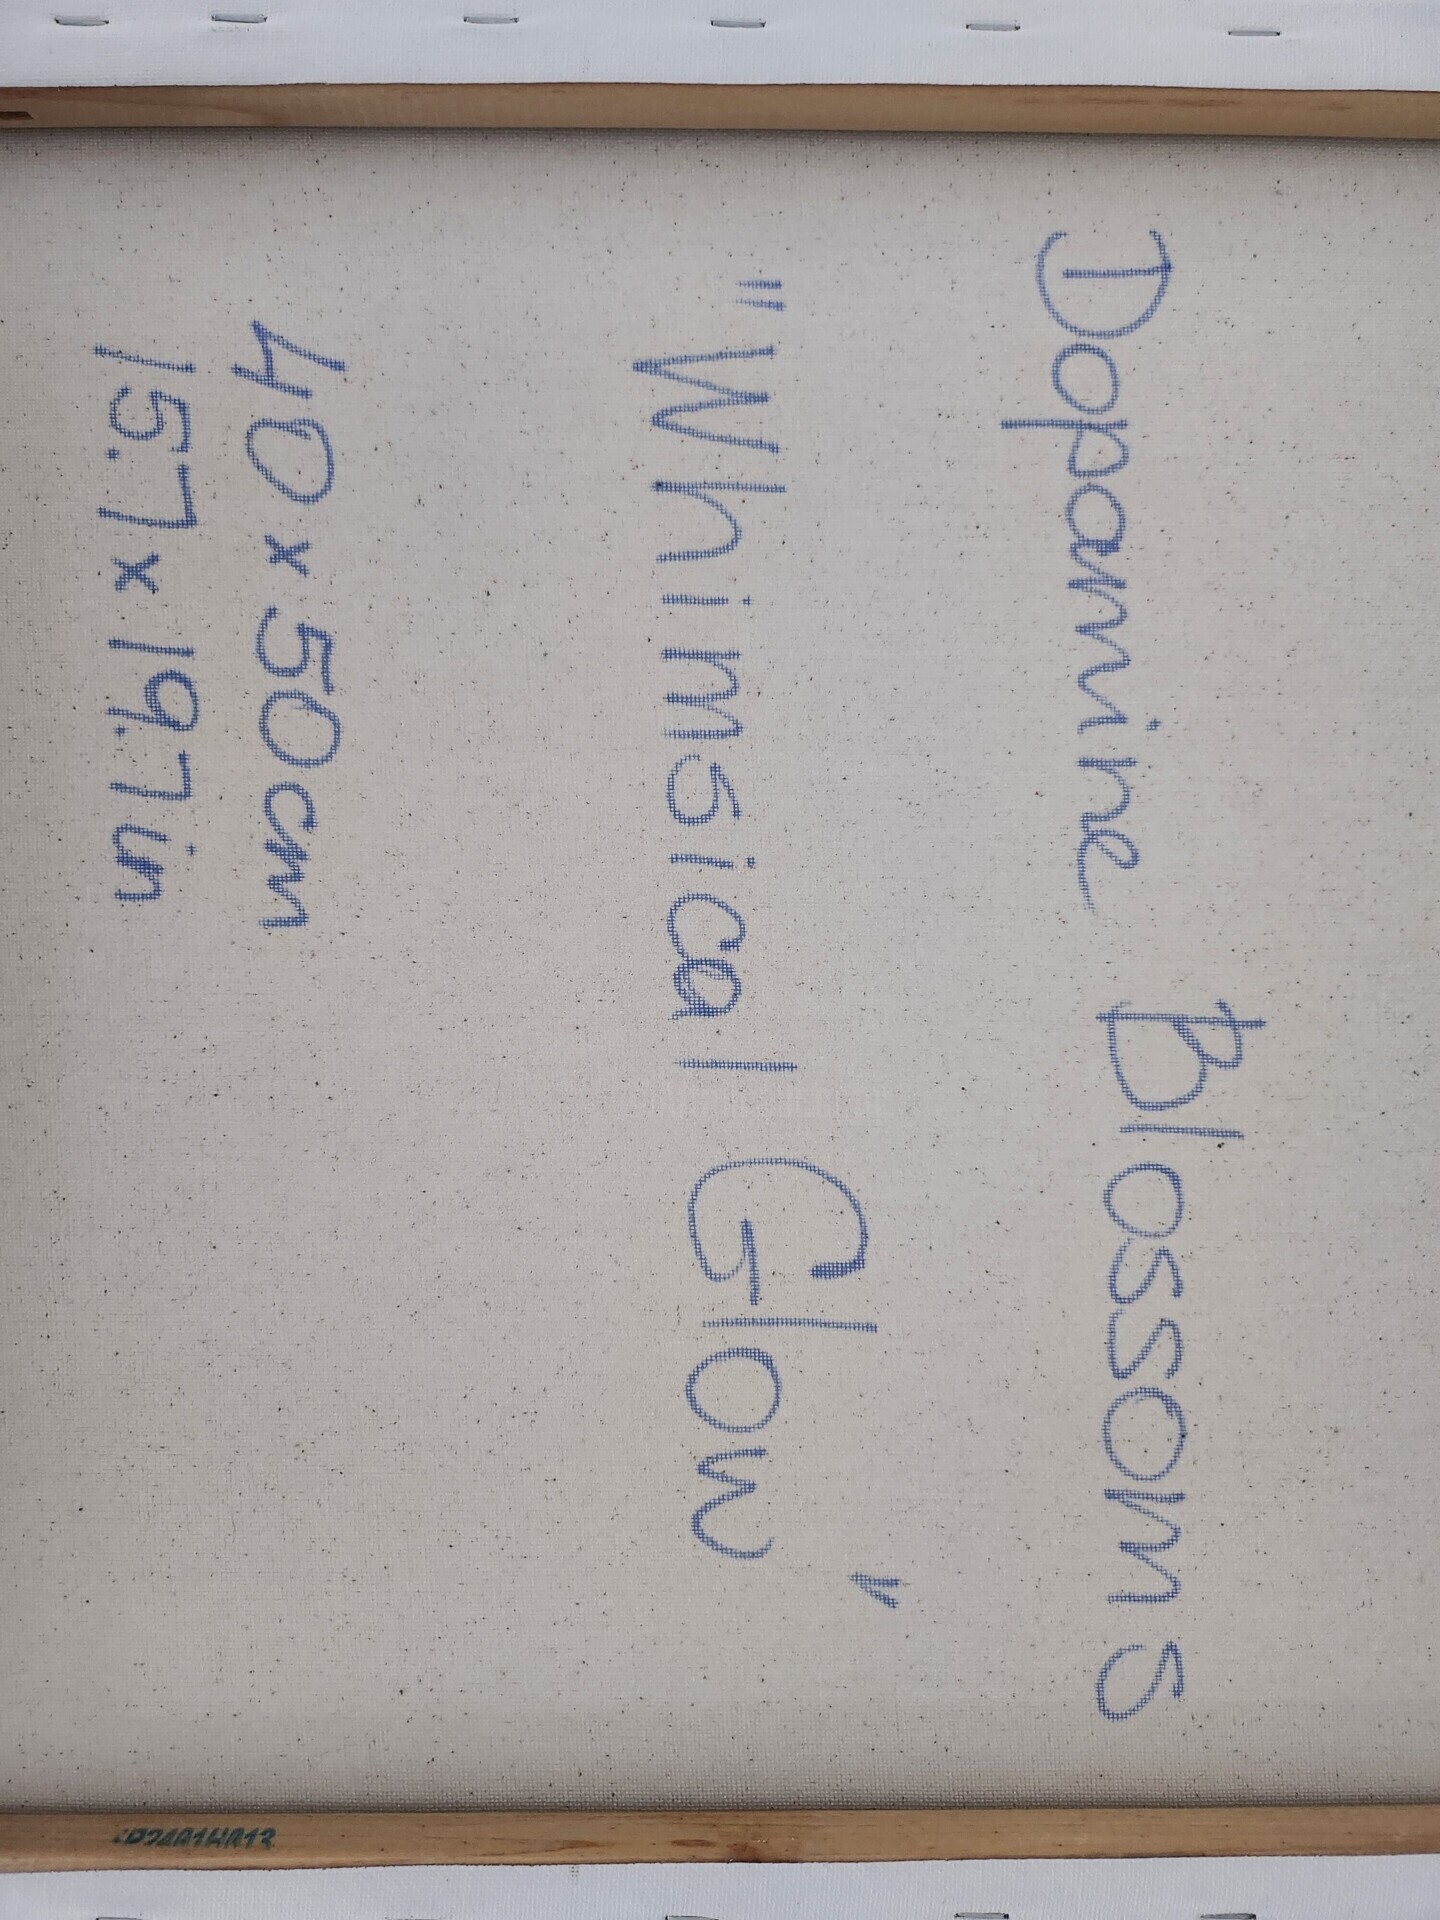 Dopamine Blossoms
"Whimsical Glow"
40 x 50cm
15.7 x 19.7 in